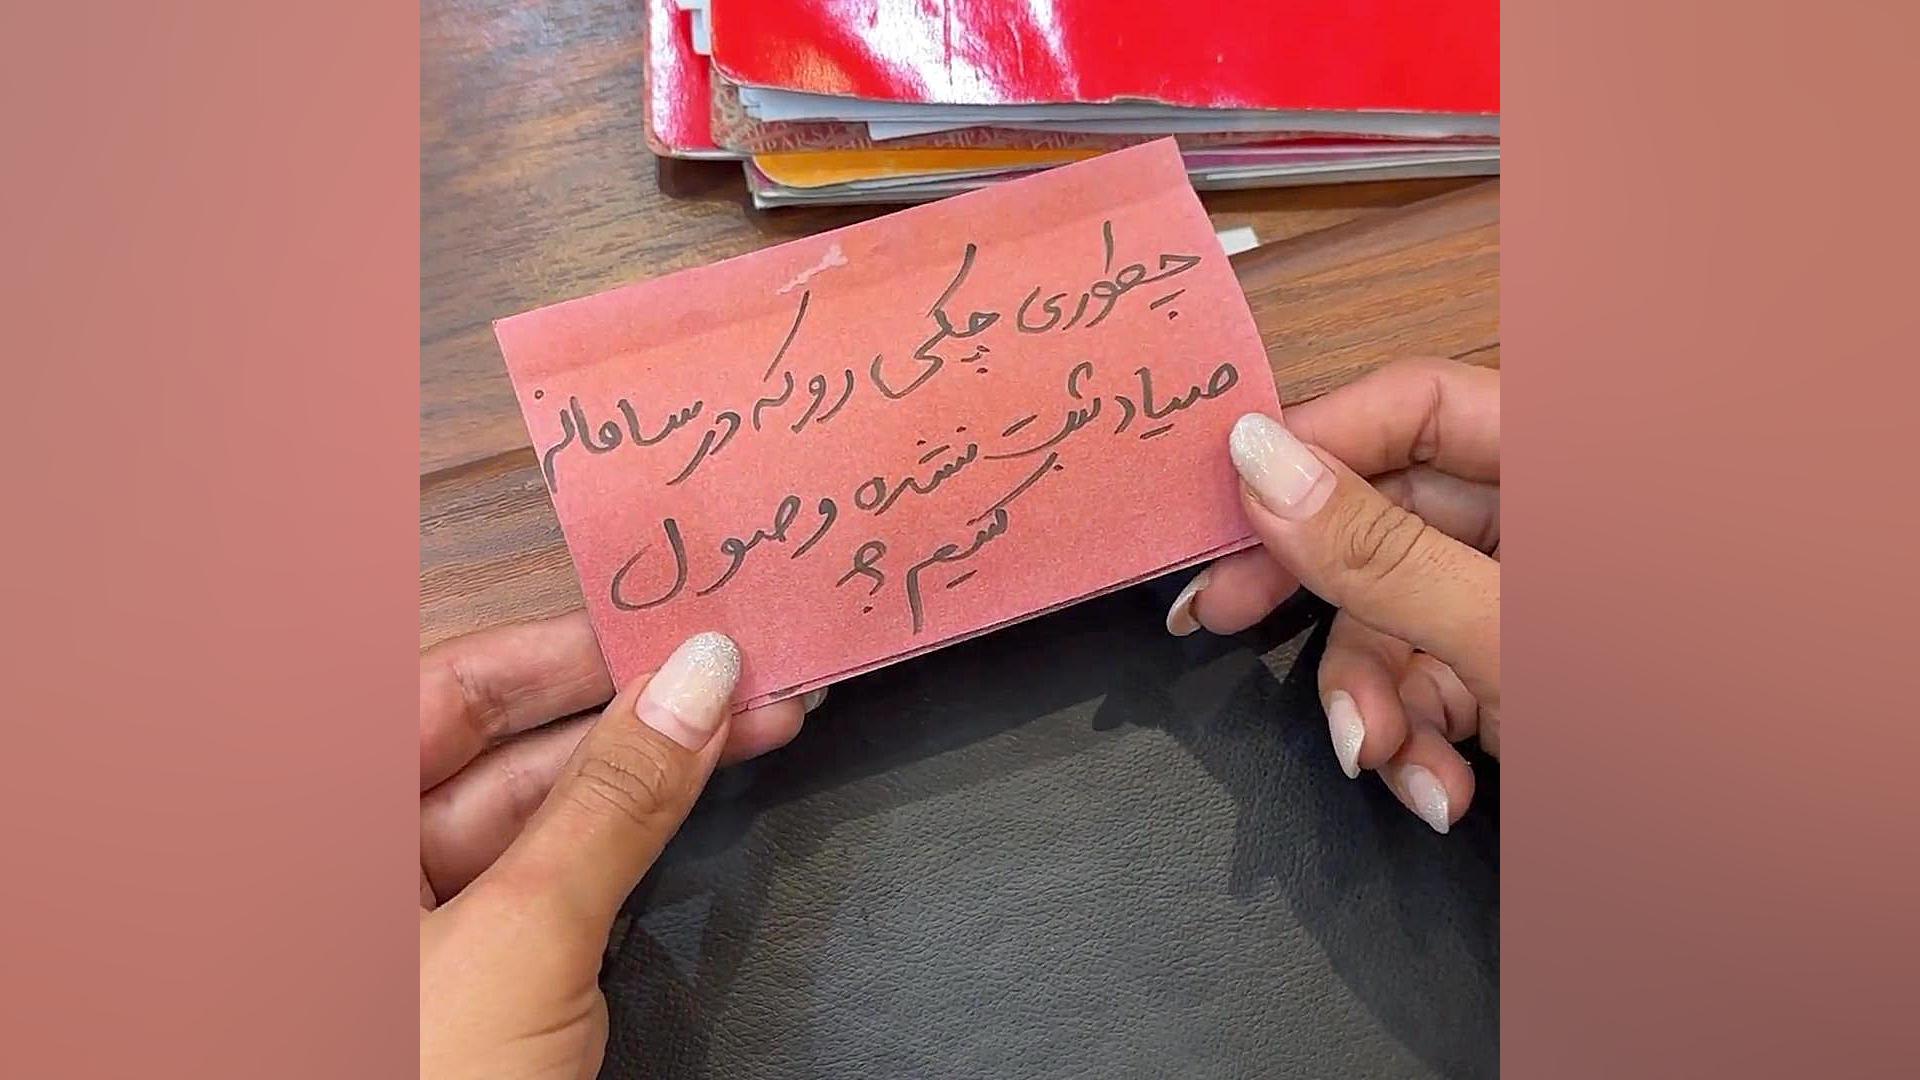 چطوری چکی رو که در سامانه
صیاد ثبت نشده وصول
کنیم؟